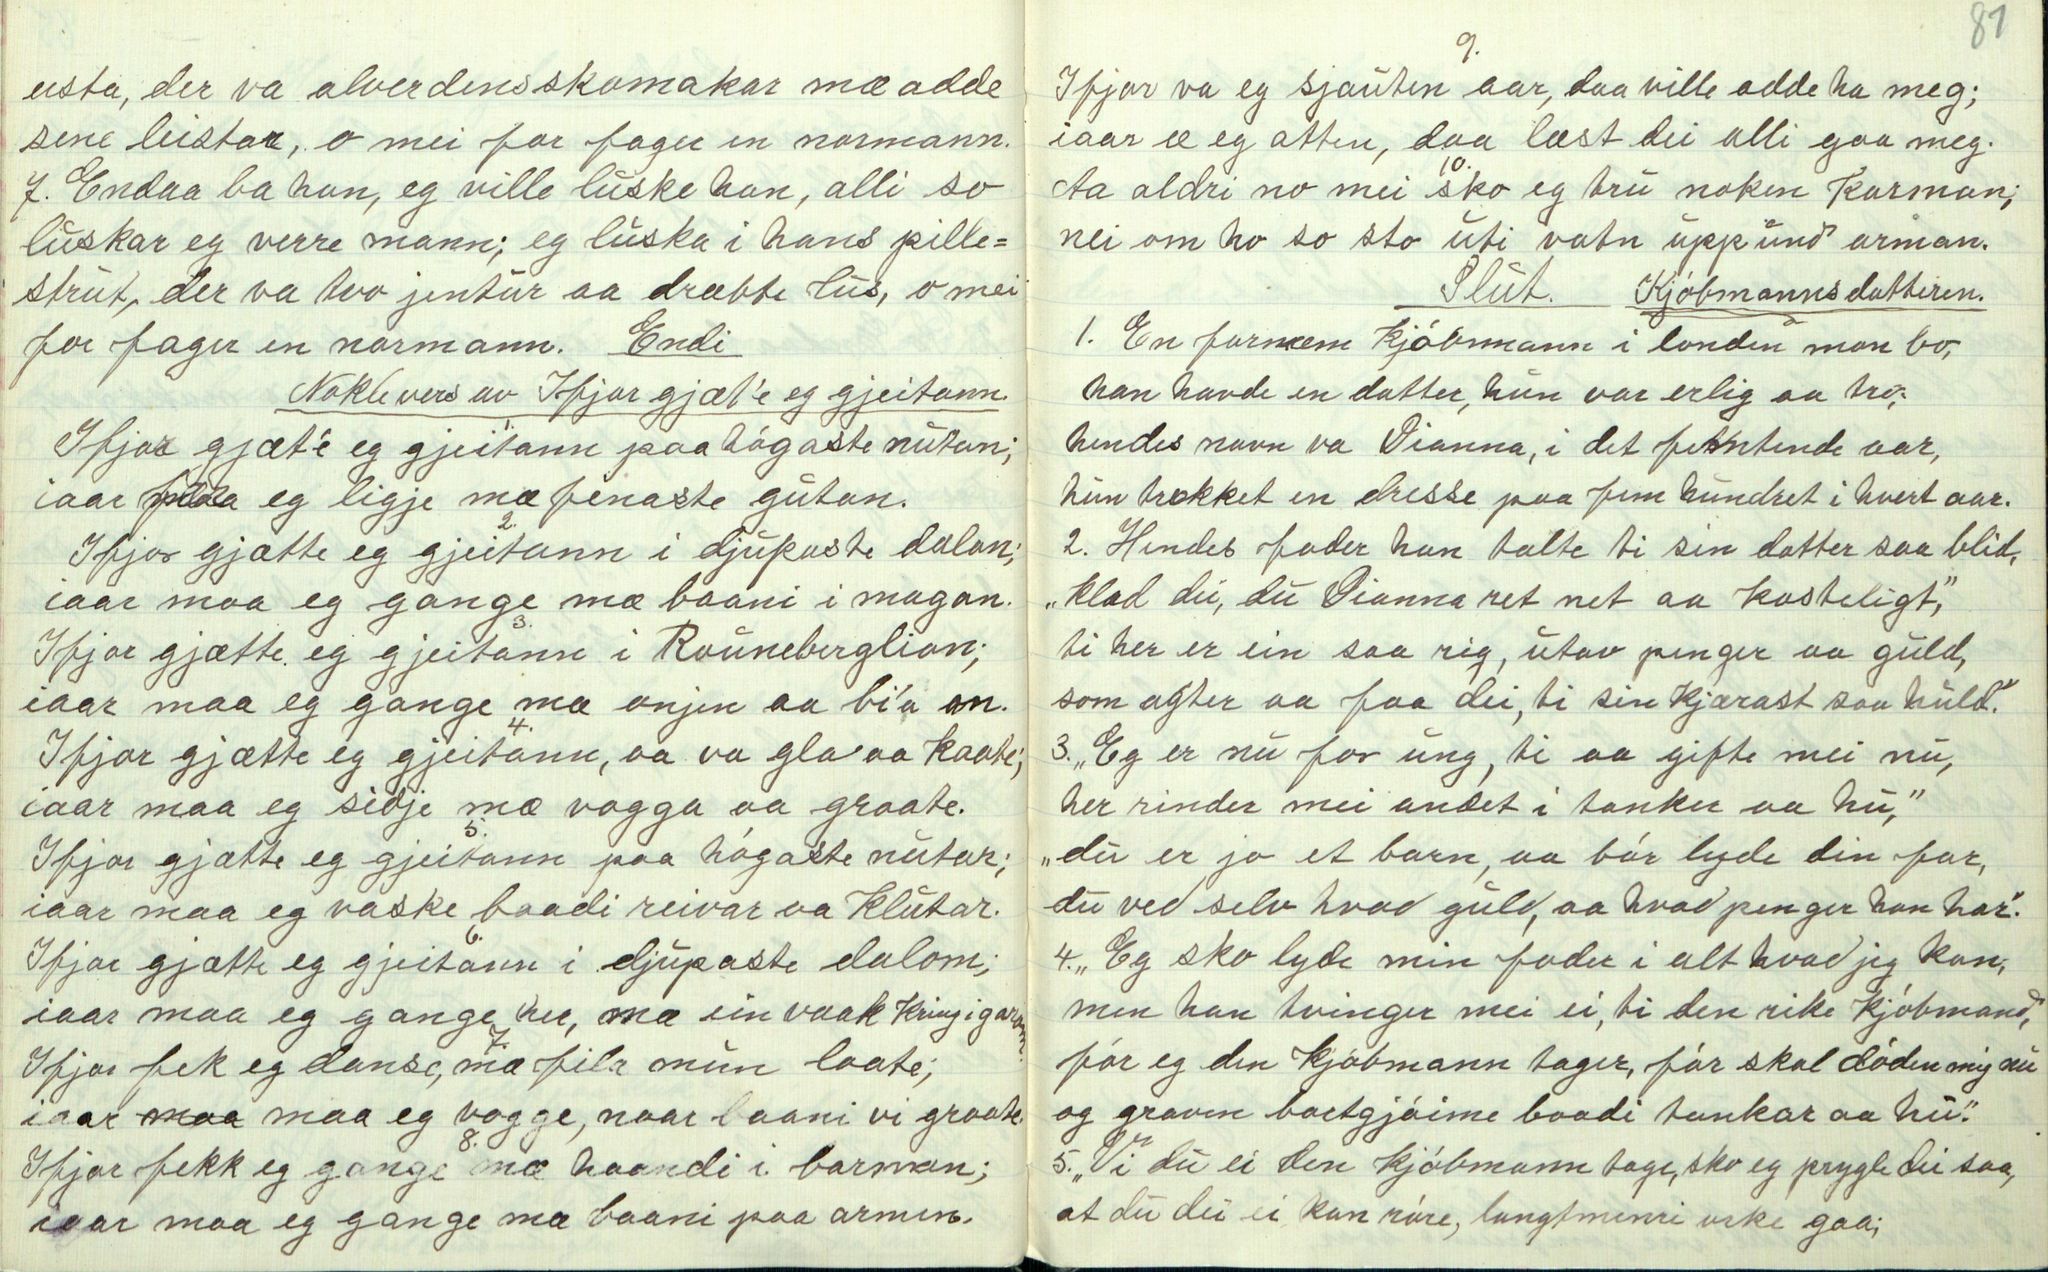 eista, der va alverdens skomakar mæ adde
sene leistar, o mei for fager en normann.
7. Endaa ba han, eg ville luske han, alli so
luskar eg verre mann; eg luska i hans pille=
strut, der va tvo jentur aa dræbte lus, o mei
for fager en normann. Endi
Nokle vers av Ifjor gjæt'e eg gjeitann.
Ifjor gjæt'e eg gjeitann paa högaste nutan;
iaar maa eg ligje mæ fenaste gutan.
2.
Ifjor gjætte eg gjeitann i djupaste dalan;
iaar maa eg gange mæ baani i magan.
3.
Ifjor gjætte eg gjeitann i Rauneberglian;
iaar maa eg gange mæ anjen aa bi'a an.
4.
Ifjor gjætte eg gjeitann, aa va gla aa kaate;
iaar maa eg sidje mæ vogga aa graate.
5.
Ifjor gjætte eg gjeitann paa högaste nutar;
iaar maa eg vaske baadi reivar aa klutar.
6.
Ifjor gjætte eg gjeitann i djupaste dalom;
iaar maa eg gange her, mæ ein vaak kring i garom.
7.
Ifjor fek eg danse, mæ fela mun laate;
iaar maa maa eg vogge, naar baani vi graate.
8.
Ifjor fekk eg gange mæ haandi i barman;
iaar maa eg gange mæ baani paa armen.
81
9.
Ifjor va eg sjauten aar, daa ville adde ha meg;
iaar æ eg atten, daa læst dei alli gaa meg.
10.
Aa aldri no mei sko eg tru noken Karman;
nei om ho so sto uti vatn upp und arman.
Slut. Kjöbmannsdatteren.
1. En fornem Kjöbmann i london mon bo,
han havde en datter, hun var erlig aa tro;
hendes navn va Dianna, i det femtende aar,
hun trækket en dresse paa fem hundret i hvert aar.
2. Hendes fader han talte ti sin datter saa blid,
„klad dei, du Dianna ret net aa kosteligt,"
ti her er ein saa rig, utav penger aa guld,
som agter aa faa dei, ti sin kjærast saa huld."
3. „Eg er nu for ung, ti aa gifte mei nu,
her rinder mei andet i tanker aa hu,"
„du er jo et barn, aa bör lyde din far,
du ved selv hvad guld, aa hvad penger han har."
4. „Eg sko lyde min fader i alt hvad jeg kan,
men han tvinger mei ei, ti den rike kjöbmand,
för eg den Kjöbmann tager, för skal döden mig nu
og graven bortgjöime baadi tankar aa hu."
5. „Vi du ei den kjöbmann tage, sko eg prygle dei saa,
at du dei ei kan röre, langtmenri orke gaa;